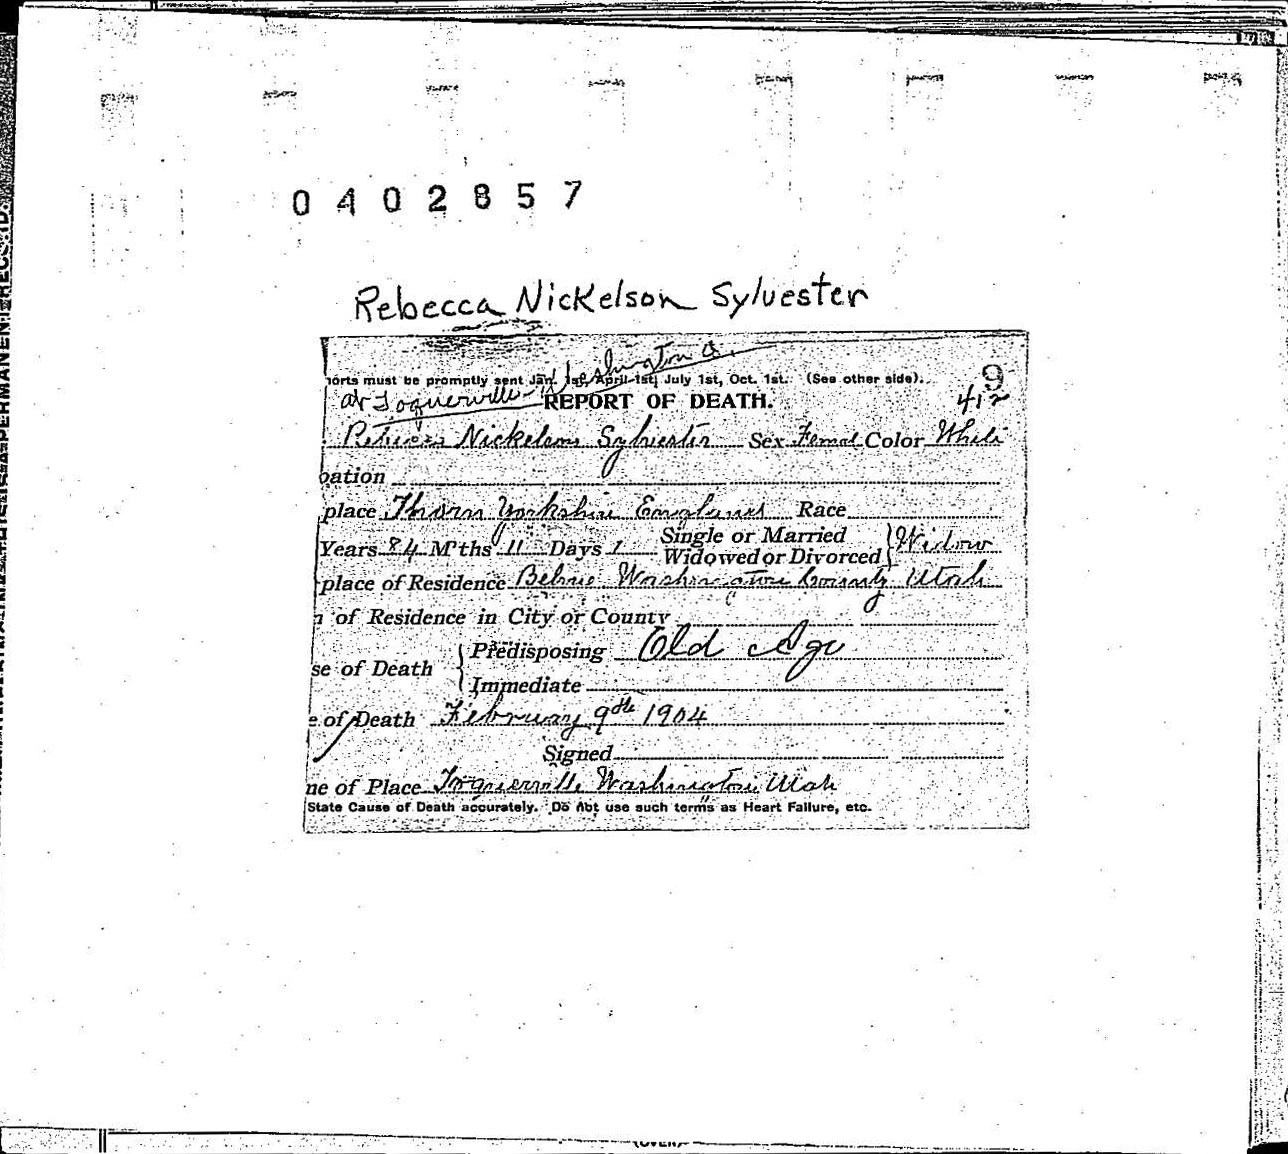 0402857
Rebecca Nickelson Sylvester
Washington Co.
orts must be promptly sent Jan. 1st, April 1st, July 1st, Oct. 1st. (See other side).
9
at Toquerville
REPORT OF DEATH.
412
Rebecca Nickelson Sylvester Sex Femal Color White
pation
place Thorn Yorkshire England Race
Years 84 M'ths 11 Days 1 Single or Married
Widowed or Divorced Widow
place of Residence Belvue Washington County Utah
of Residence in City or County
Predisposing Old Age
se of Death
Immediate
e of Death February 9th 1904
Signed
ne of Place Toquerville Washington Utah
State Cause of Death accurately. Do not use such terms as Heart Failure, etc.
(OVER)